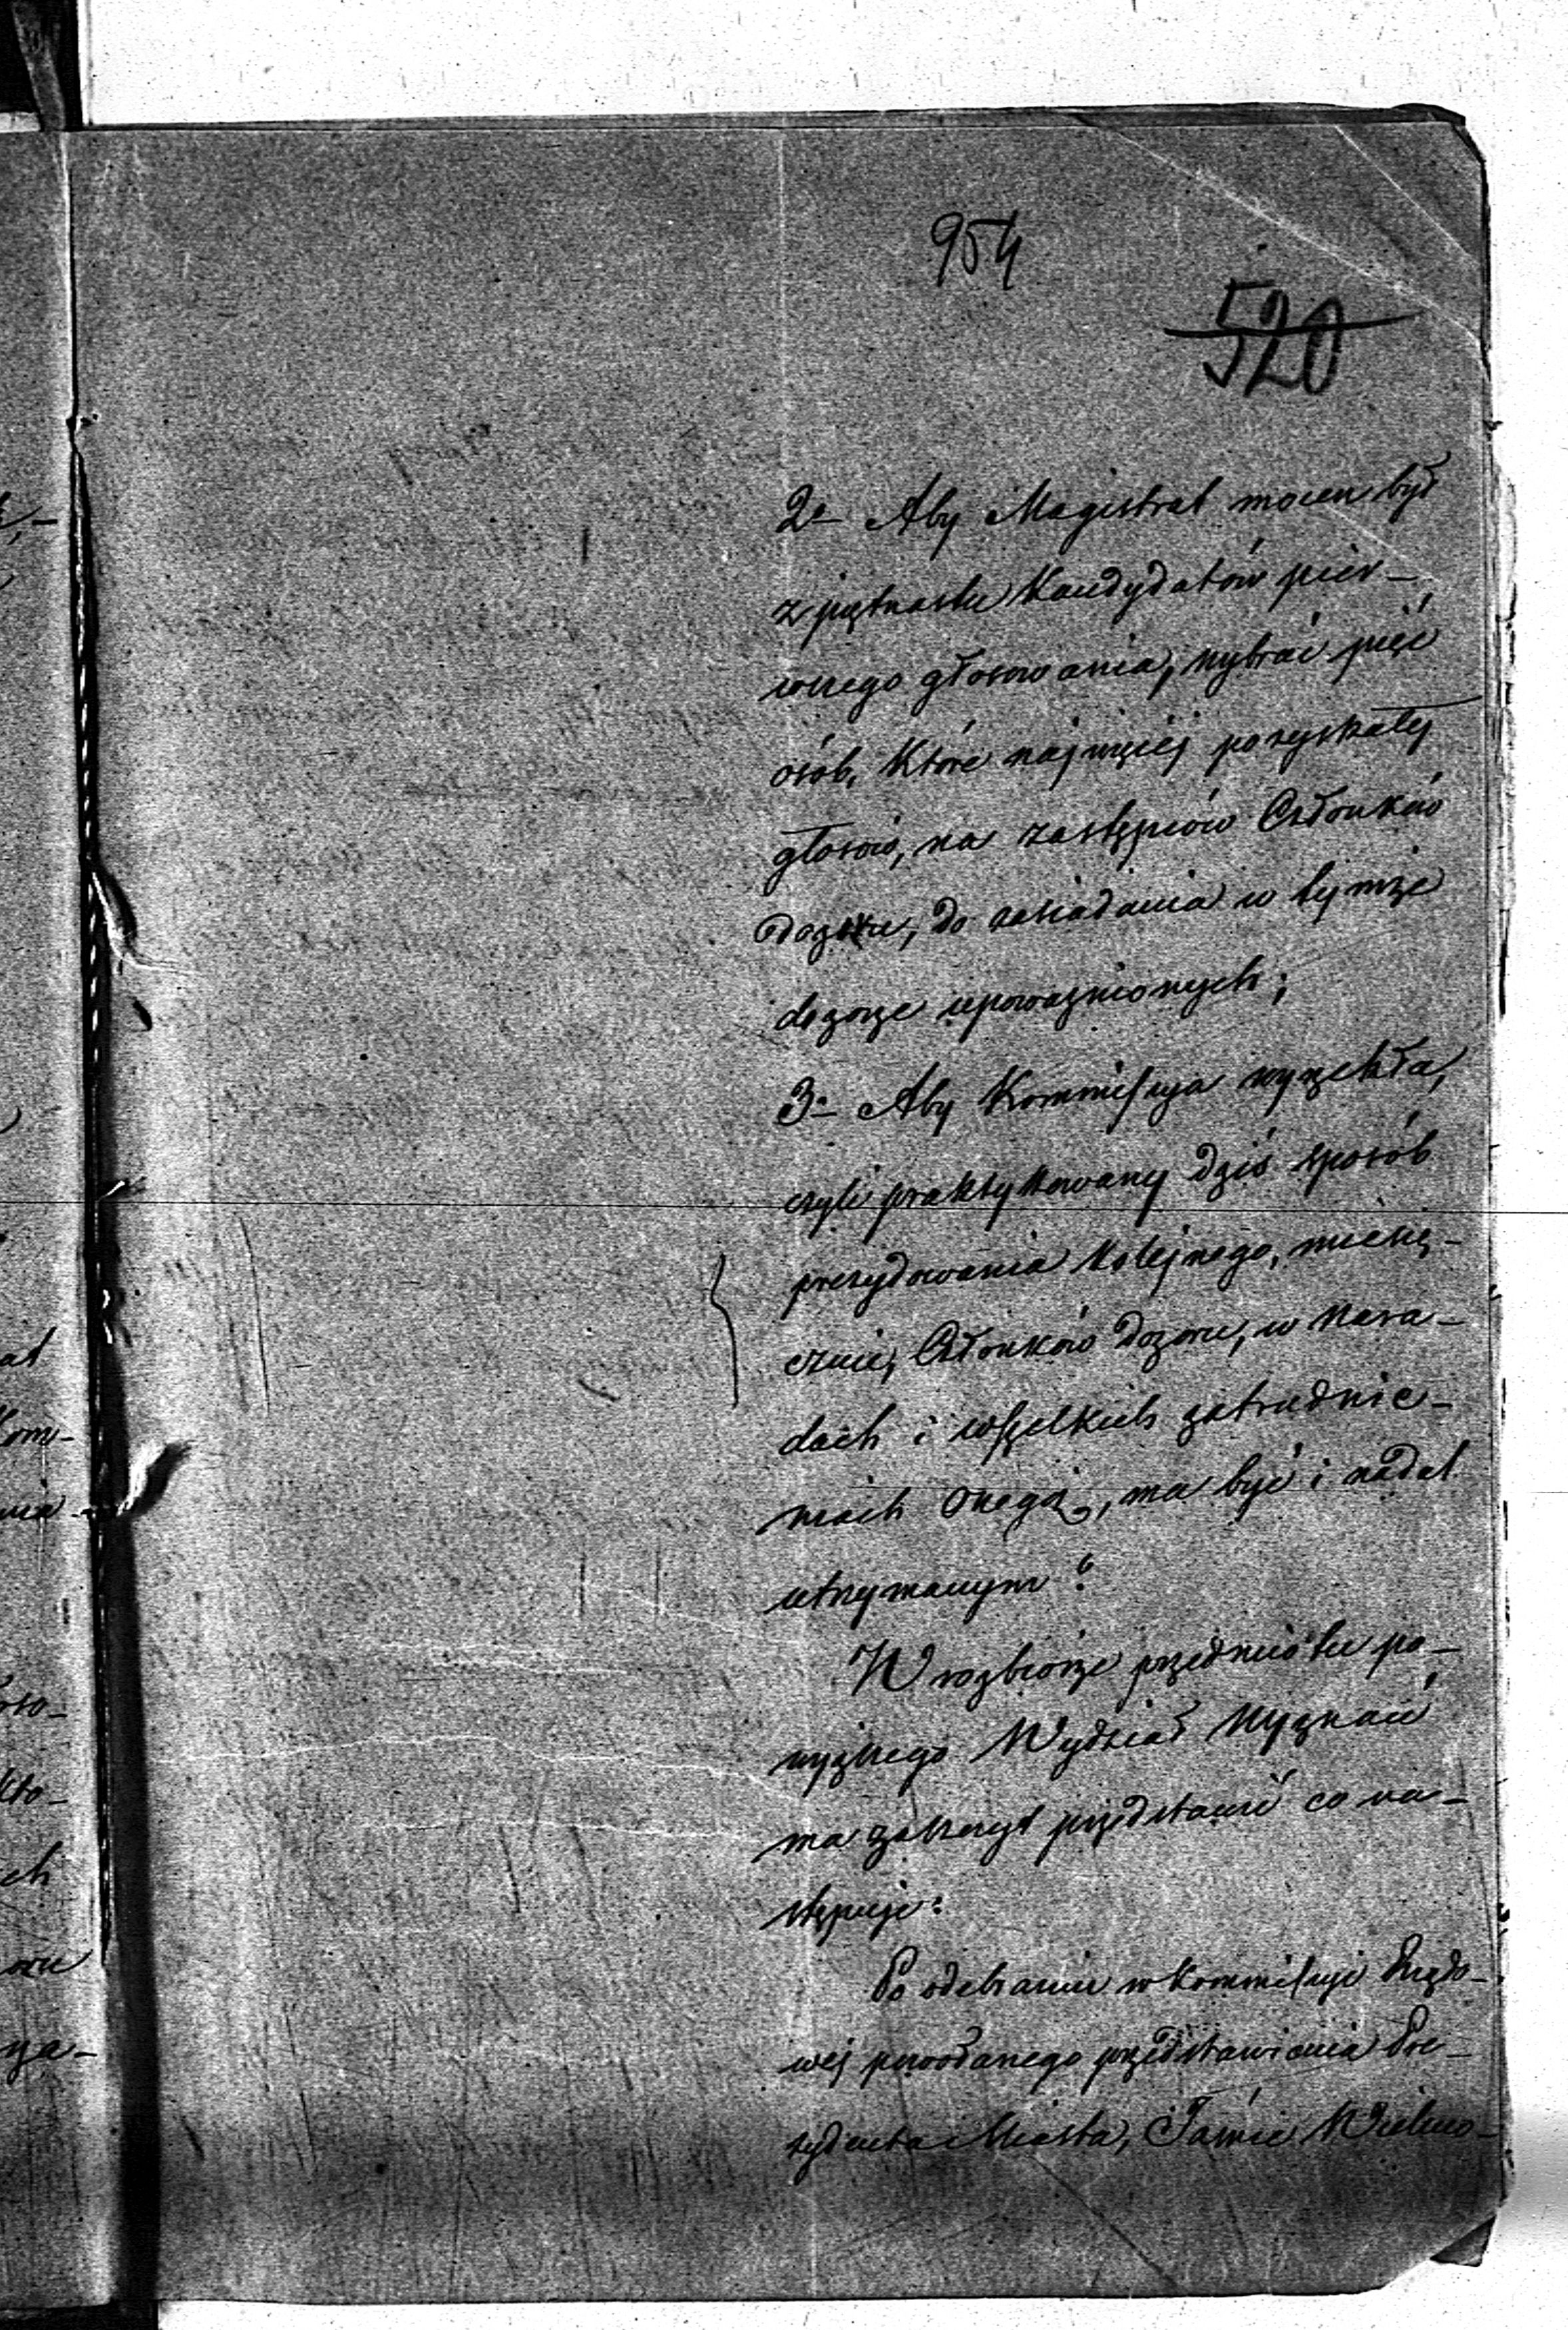 954
520
2o Aby Magistrat mocen był
z piętnastu Kandydatów pier-
wszego głosowania, wybrać pięć
osób, które najwięcej pozyskały
głosów, na zastępców Członków
dozoru, do zasiadania w tymże
dozorze upoważnionych;
3o Aby Kommissya wyrzekła,
czyli praktykowany dziś sposób
prezydowania kolejnego, miesię-
cznie, Członków Dozoru, w nara-
dach i wszelkich zatrudnie-
niach onegoż, ma być i nadal
utrzymanym?
W rozbiorze przedmiotu po-
wyższego Wydział Wyznań
ma zaszczyt przedstawić co na-
stępuje:
Po odebraniu w Kommissyi Rządo-
wej powołanego przedstawienia Pre-
zydenta Miasta, Jaśnie Wielmo-